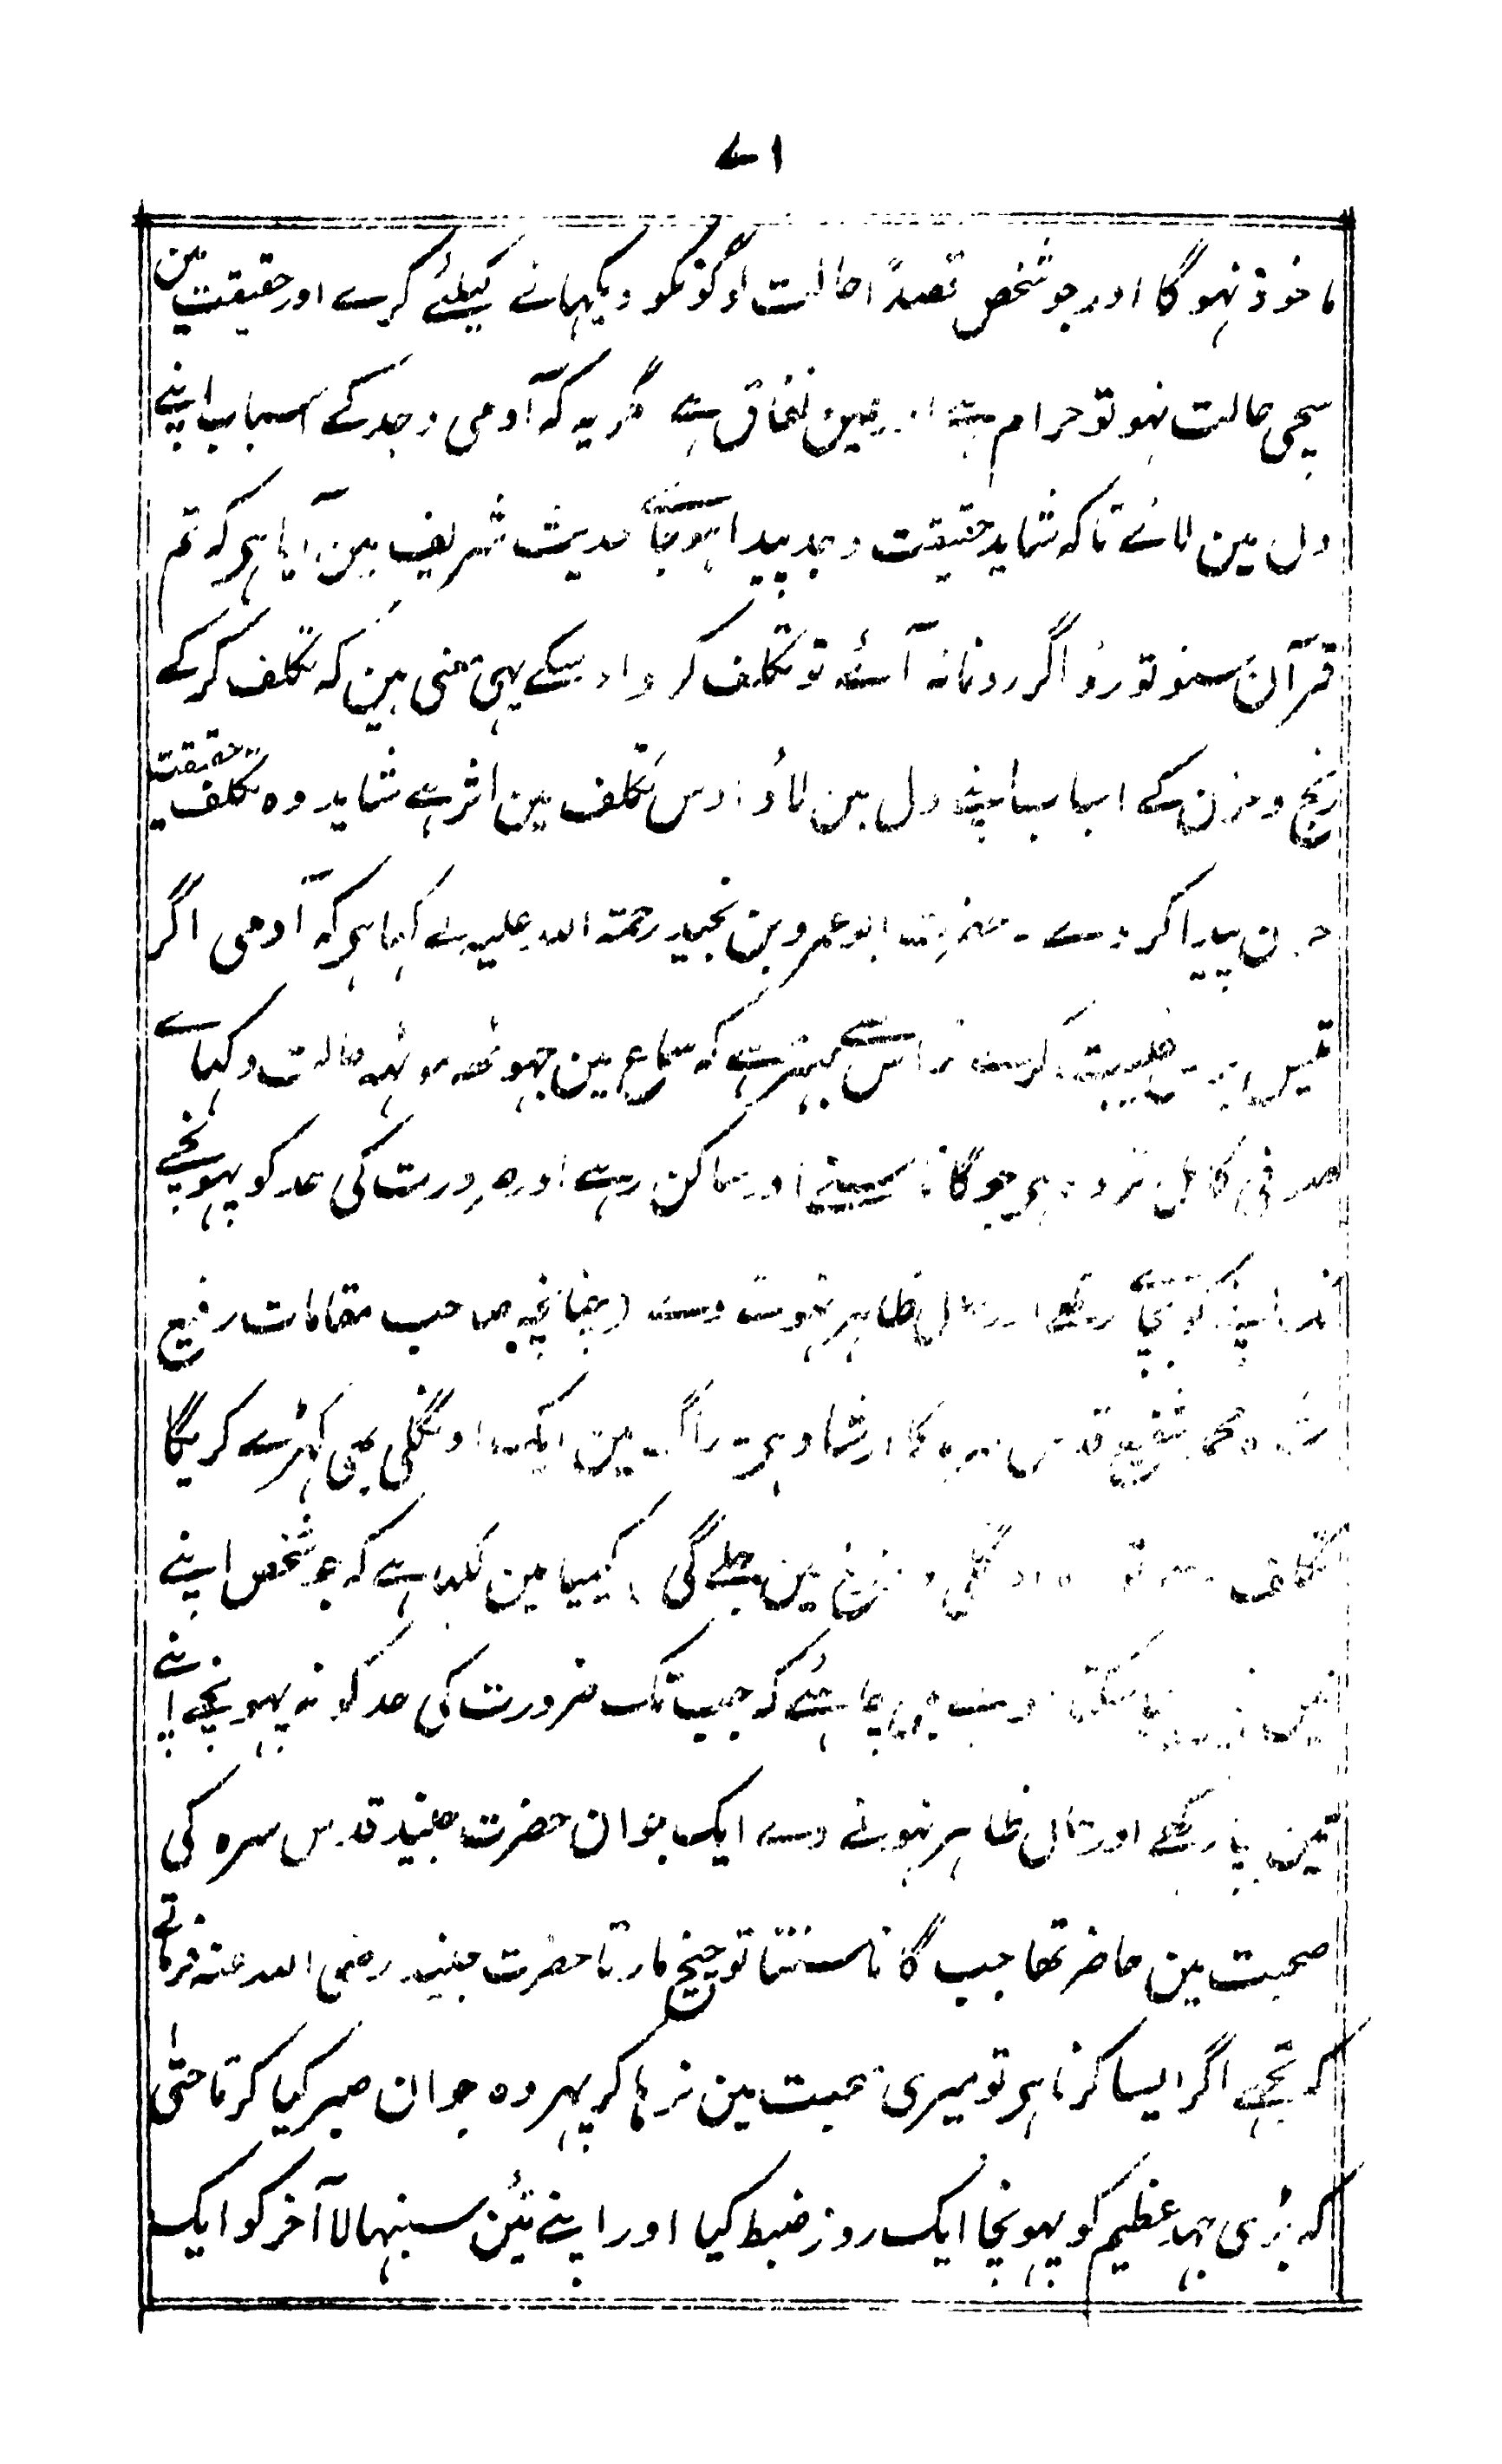 ۷۱
ماخوذ نہوگا اور جو شخص قصداً حالت لوگونکو دیکہانے کیلئے کرے اور حقیقت مین
سچی حالت نہو تو حرام ہے اور عین نفاق ہے مگر یہ کہ آدمی وجد کے اسباب اپنے
دل مین لائے تاکہ شاید حقیقت وجد پیدا ہوجائے حدیث شریف مین آیا ہی کہ تم
قرآن سنو تو رؤ اگر رونا نہ آئے تو تکلف کرو اوسکے یہی معنی ہین کہ تکلف کرکے
رنج و حزن کے اسباب اپنے دل مین لاؤ اوس تکلف مین اثر ہے شاید وہ تکلف حقیقت
حزن پیدا کردے ۔ حضرت ابو عمرو بن نجید رحمتہ اللہ علیہ نے کہا ہی کہ آدمی اگر
تیس برس غیبت کرے تو اس سے بہتر ہے کہ سماع مین جہوٹھ موٹہہ حالت دکہائے
صوفی کامل تر وہ ہی جو گانا سنے اور ساکن رہے اور ضرورت کی حد کو پہونچے
رکھے اور حال ظاہر نہونے دے (چنانچہ صاحب مقامات رفیع
شاہ محمد شفیع قدس سرہ کا ارشاد ہی راگ مین ایک اونگلی بھی کہڑے کریگا
تکلف سے تو وہ اونگلی دوزخ مین جلے گی) کیمیا مین لکہا ہے کہ جو شخص اپنے
چاہئے کہ جب تک ضرورت کی حد کو نہ پہونچے اپنے
تئین رکھے اور حال ظاہر نہونے دے ایک جوان حضرت جنید قدس سرہ کی
صحبت مین حاضر تھا جب گانا سنتا تو چیخ مارتا حضرت جنید رضی اللہ عنہ فرماتے
کہ تجہے اگر ایسا کرنا ہی تو میری صحبت مین نرہا کر پہر وہ جوان صبر کیا کرتا حتٰی
کہ بڑی جہد عظیم کو پہونچا ایک روز ضبط کیا اور اپنے تئین سنبہالا آخر کو ایک